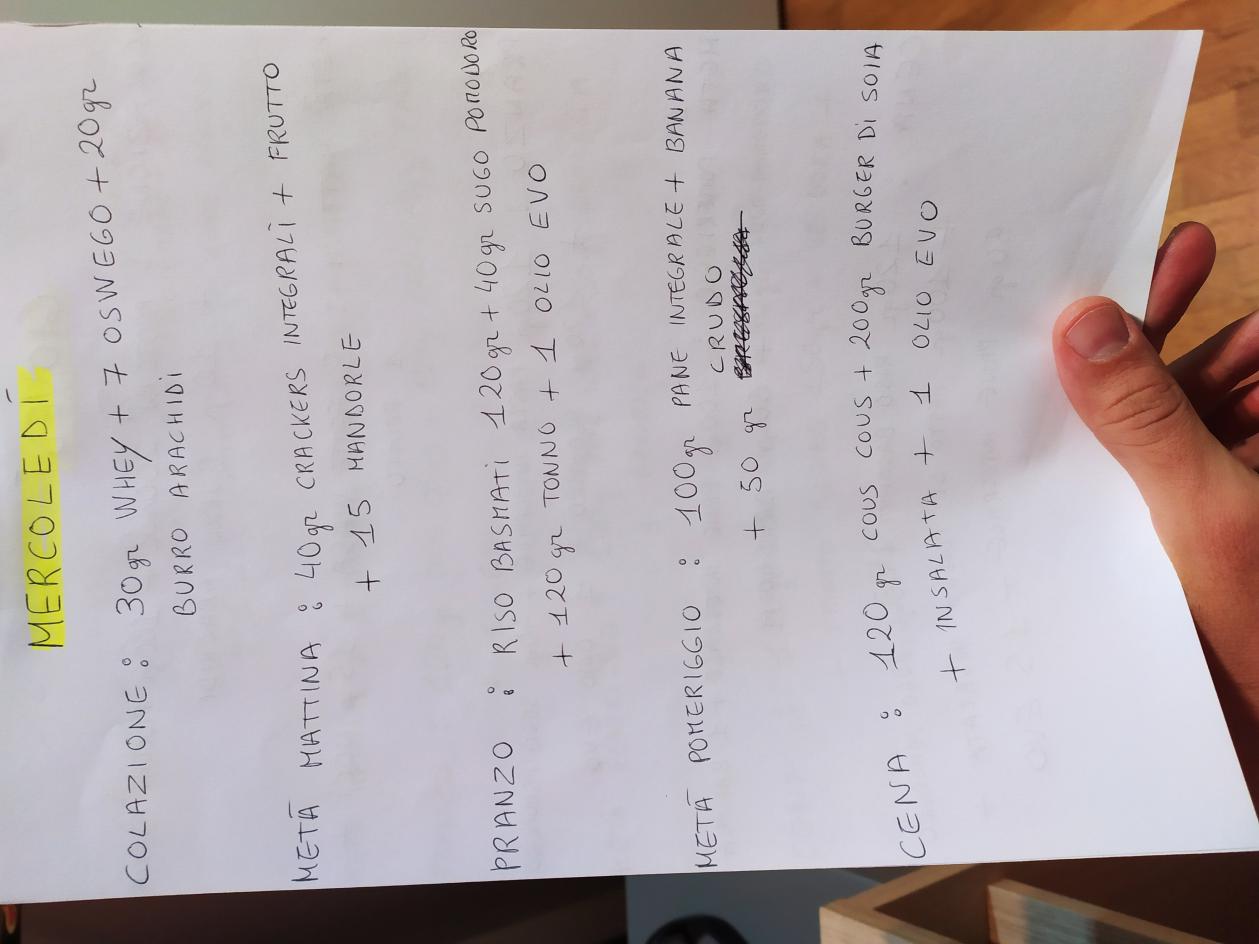 MERCOLEDÌ
COLAZIONE : 30gr WHEY + 7 OSWEGO + 20gr
BURRO ARACHIDI
METÀ MATTINA : 40gr CRACKERS INTEGRALI + FRUTTO
+ 15 MANDORLE
PRANZO : RISO BASMATI 120gr + 40gr SUGO POMODORO
+ 120gr TONNO + 1 OLIO EVO
METÀ POMERIGGIO : 100gr PANE INTEGRALE + BANANA
+ 50 gr CRUDO
CENA : 120 gr COUS COUS + 200gr BURGER Di SOIA
+ INSALATA + 1 OLIO EVO